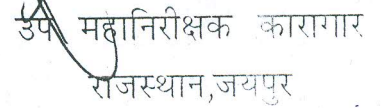 उप महानिरीक्षक कारागार
राजस्थान,जयपुर